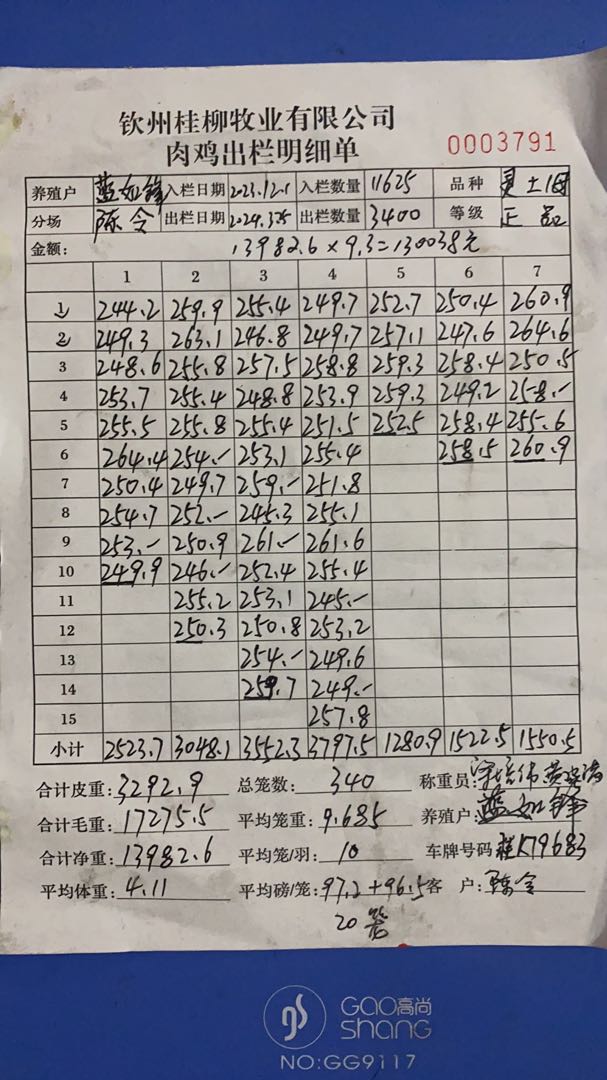 钦州桂柳牧业有限公司
肉鸡出栏明细单 0003791
养殖户 蓝如锋 入栏日期 2023.12.1 入栏数量 11625 品种 灵土1母
分场 陈令 出栏日期 2024.3.25 出栏数量 3400 等级 正品
金额: 13982.6×9.3=130038元
1 2 3 4 5 6 7
1 244.2 259.9 255.4 249.7 252.7 250.4 260.9
2 249.3 263.1 246.8 249.7 257.1 247.6 264.6
3 248.6 255.8 257.5 258.8 259.3 258.4 250.5
4 253.7 255.4 248.8 253.9 259.3 249.2 258.-
5 255.5 255.8 255.4 251.5 252.5 258.4 255.6
6 264.4 254.- 253.1 255.4 258.5 260.9
7 250.4 249.7 259.- 251.8
8 254.7 252.- 245.3 255.1
9 253.- 250.9 261.- 261.6
10 249.9 246.- 252.4 255.4
11 255.2 253.1 245.-
12 250.3 250.8 253.2
13 254.- 249.6
14 259.7 249.-
15 257.8
小计 2523.7 3048.1 3552.3 3797.5 1280.9 1522.5 1550.5
合计皮重: 3292.9 总笼数: 340 称重员:
合计毛重: 17275.5 平均笼重: 9.685 养殖户: 蓝如锋
合计净重: 13982.6 平均笼/羽: 10 车牌号码 桂K79683
平均体重: 4.11 平均磅/笼: 97.2+96.5 客 户: 陈令
20笼
GaoShang高尚
NO:GG9117